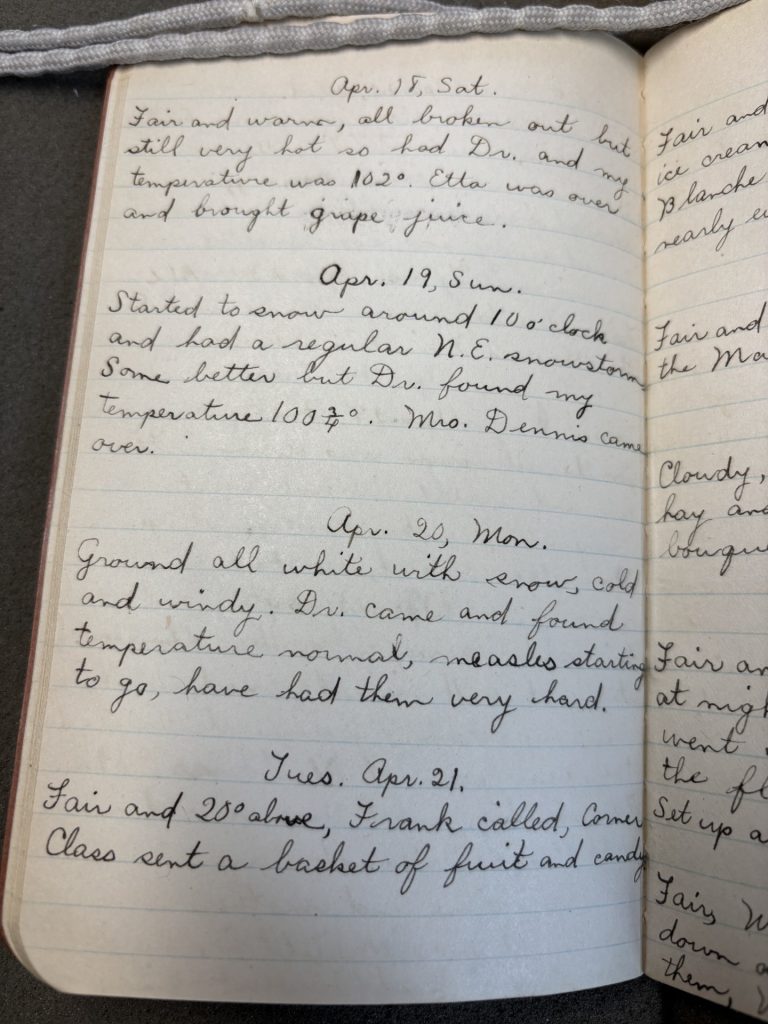 Apr. 18, Sat.
Fair and warm, all broken out but
still very hot so had Dr. and my
temperature was 102°. Etta was over
and brought grape juice.
Apr. 19, Sun.
Started to snow around 10 o'clock
and had a regular N.E. snowstorm
Some better but Dr. found my
temperature 100 3/4°. Mrs. Dennis came
over.
Apr. 20, Mon.
Ground all white with snow, cold
and windy. Dr. came and found
temperature normal, measles starting
to go, have had them very hard.
Tues. Apr. 21.
Fair and 20° above, Frank called, Corner
Class sent a basket of fruit and candy
Fair and
ice cream
Blanche
nearly
Fair and
the
Cloudy,
hay and
Fair
at
went
the
Set up
Fair,
down
them,